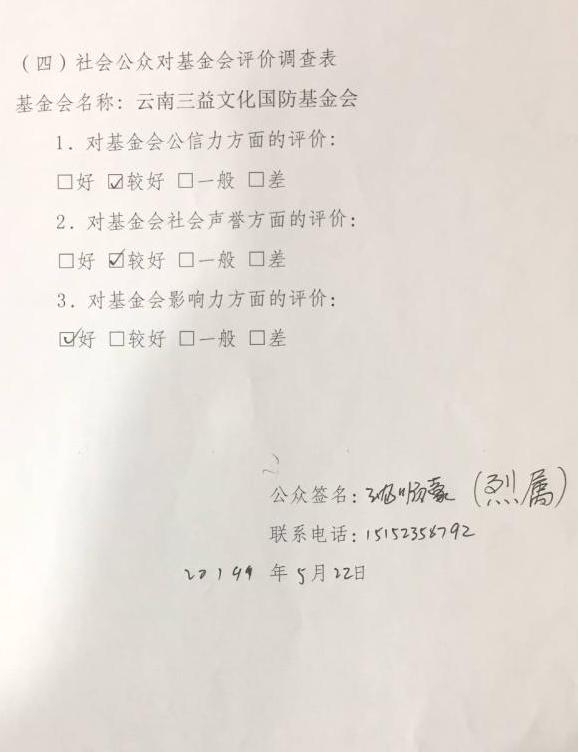 （四）社会公众对基金会评价调查表
基金会名称：云南三益文化国防基金会
1．对基金会公信力方面的评价：
□好 ☑较好 □一般 □差
2．对基金会社会声誉方面的评价：
□好 ☑较好 □一般 □差
3．对基金会影响力方面的评价：
☑好 □较好 □一般 □差
公众签名：（烈属）
联系电话：15152358792
年5月22日